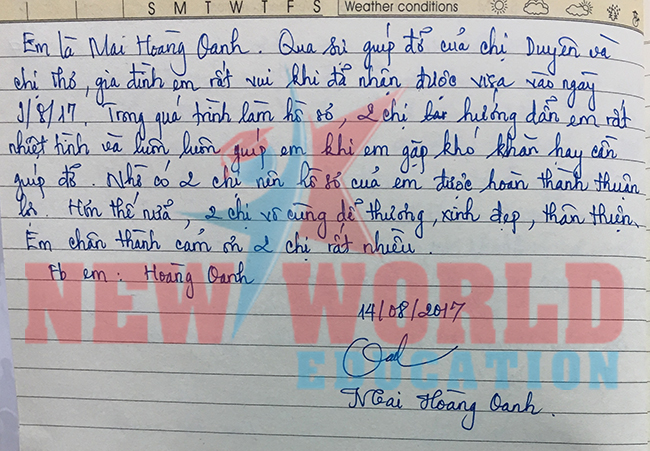 S M T W T F S Weather conditions
Em là Mai Hoàng Oanh. Qua sự giúp đỡ của chị Duyên và
chị Thơ, gia đình em rất vui khi đã nhận được visa vào ngày
9/8/17. Trong quá trình làm hồ sơ, 2 chị hướng dẫn em rất
nhiệt tình và luôn luôn giúp em khi em gặp khó khăn hay cần
giúp đỡ. Nhờ có 2 chị nên hồ sơ của em được hoàn thành thuận
lợi. Hơn thế nữa, 2 chị vô cùng dễ thương, xinh đẹp, thân thiện.
Em chân thành cảm ơn 2 chị rất nhiều.
Fb em: Hoàng Oanh
NEW WORLD
EDUCATION
14/08/2017
Mai Hoàng Oanh.